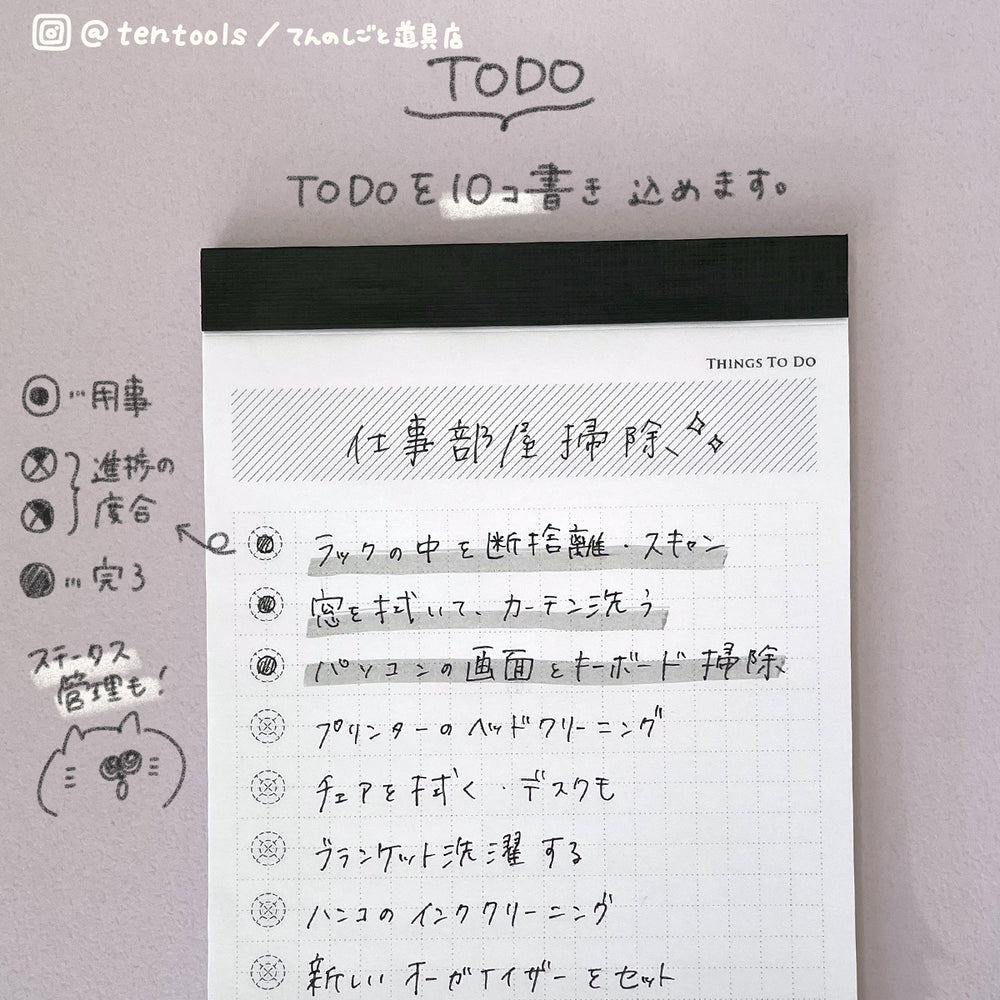 @tentools/てんのしごと道具店
TODO
TODOを10コ書き込めます。
THINGS TO DO
仕事部屋掃除
…用事
進捗の
度合
…完了
ステータス
管理も!
ラックの中を断捨離・スキャン
窓を拭いて、カーテン洗う
パソコンの画面とキーボード掃除
プリンターのヘッドクリーニング
チェアを拭く・デスクも
ブランケット洗濯する
ハンコのインククリーニング
新しいオーガナイザーをセット